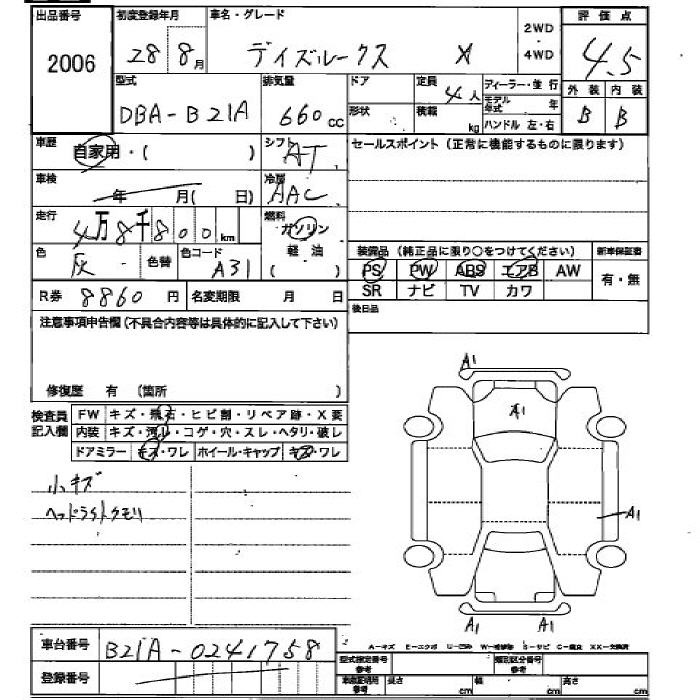 出品番号 初度登録年月 車名・グレード 2WD ・ 4WD 評価点
2006 28 8月 デイズルークス X 4.5
型式 排気量 ドア 定員 ディーラー・並行 外装 内装
DBA-B21A 660cc 形状 4人 積載 kg モデル年式 年 B B
ハンドル 左・右
車歴 自家用・( ) シフト AT セールスポイント(正常に機能するものに限ります)
車検 年 月( 日) 冷房 AAC
走行 4万8千800km 燃料 ガソリン 軽油 ( )
色 灰 色替 色コード A31
装備品(純正品に限り○をつけてください) 新車保証書
PS PW ABS エアB AW 有・無
SR ナビ TV カワ
R券 8860円 名変期限 月 日 後日品
注意事項申告欄(不具合内容等は具体的に記入して下さい)
修復歴 有 (箇所 )
検査員記入欄 FW キズ・飛石・ヒビ割・リペア跡・X要
内装 キズ・汚レ・コゲ・穴・スレ・ヘタリ・破レ
ドアミラー キズ・ワレ ホイール・キャップ キズ・ワレ
小キズ
ヘッドライトクモリ
A1
A1
A1
A1 A1
A-キズ E-エクボ U-凹み W-補修跡 S-サビ C-腐食 XX-交換済
車台番号 B21A-0241758
登録番号
型式指定番号 参考 類別区分番号 参考
車庫証明用 参考 長さ cm 幅 cm 高さ cm